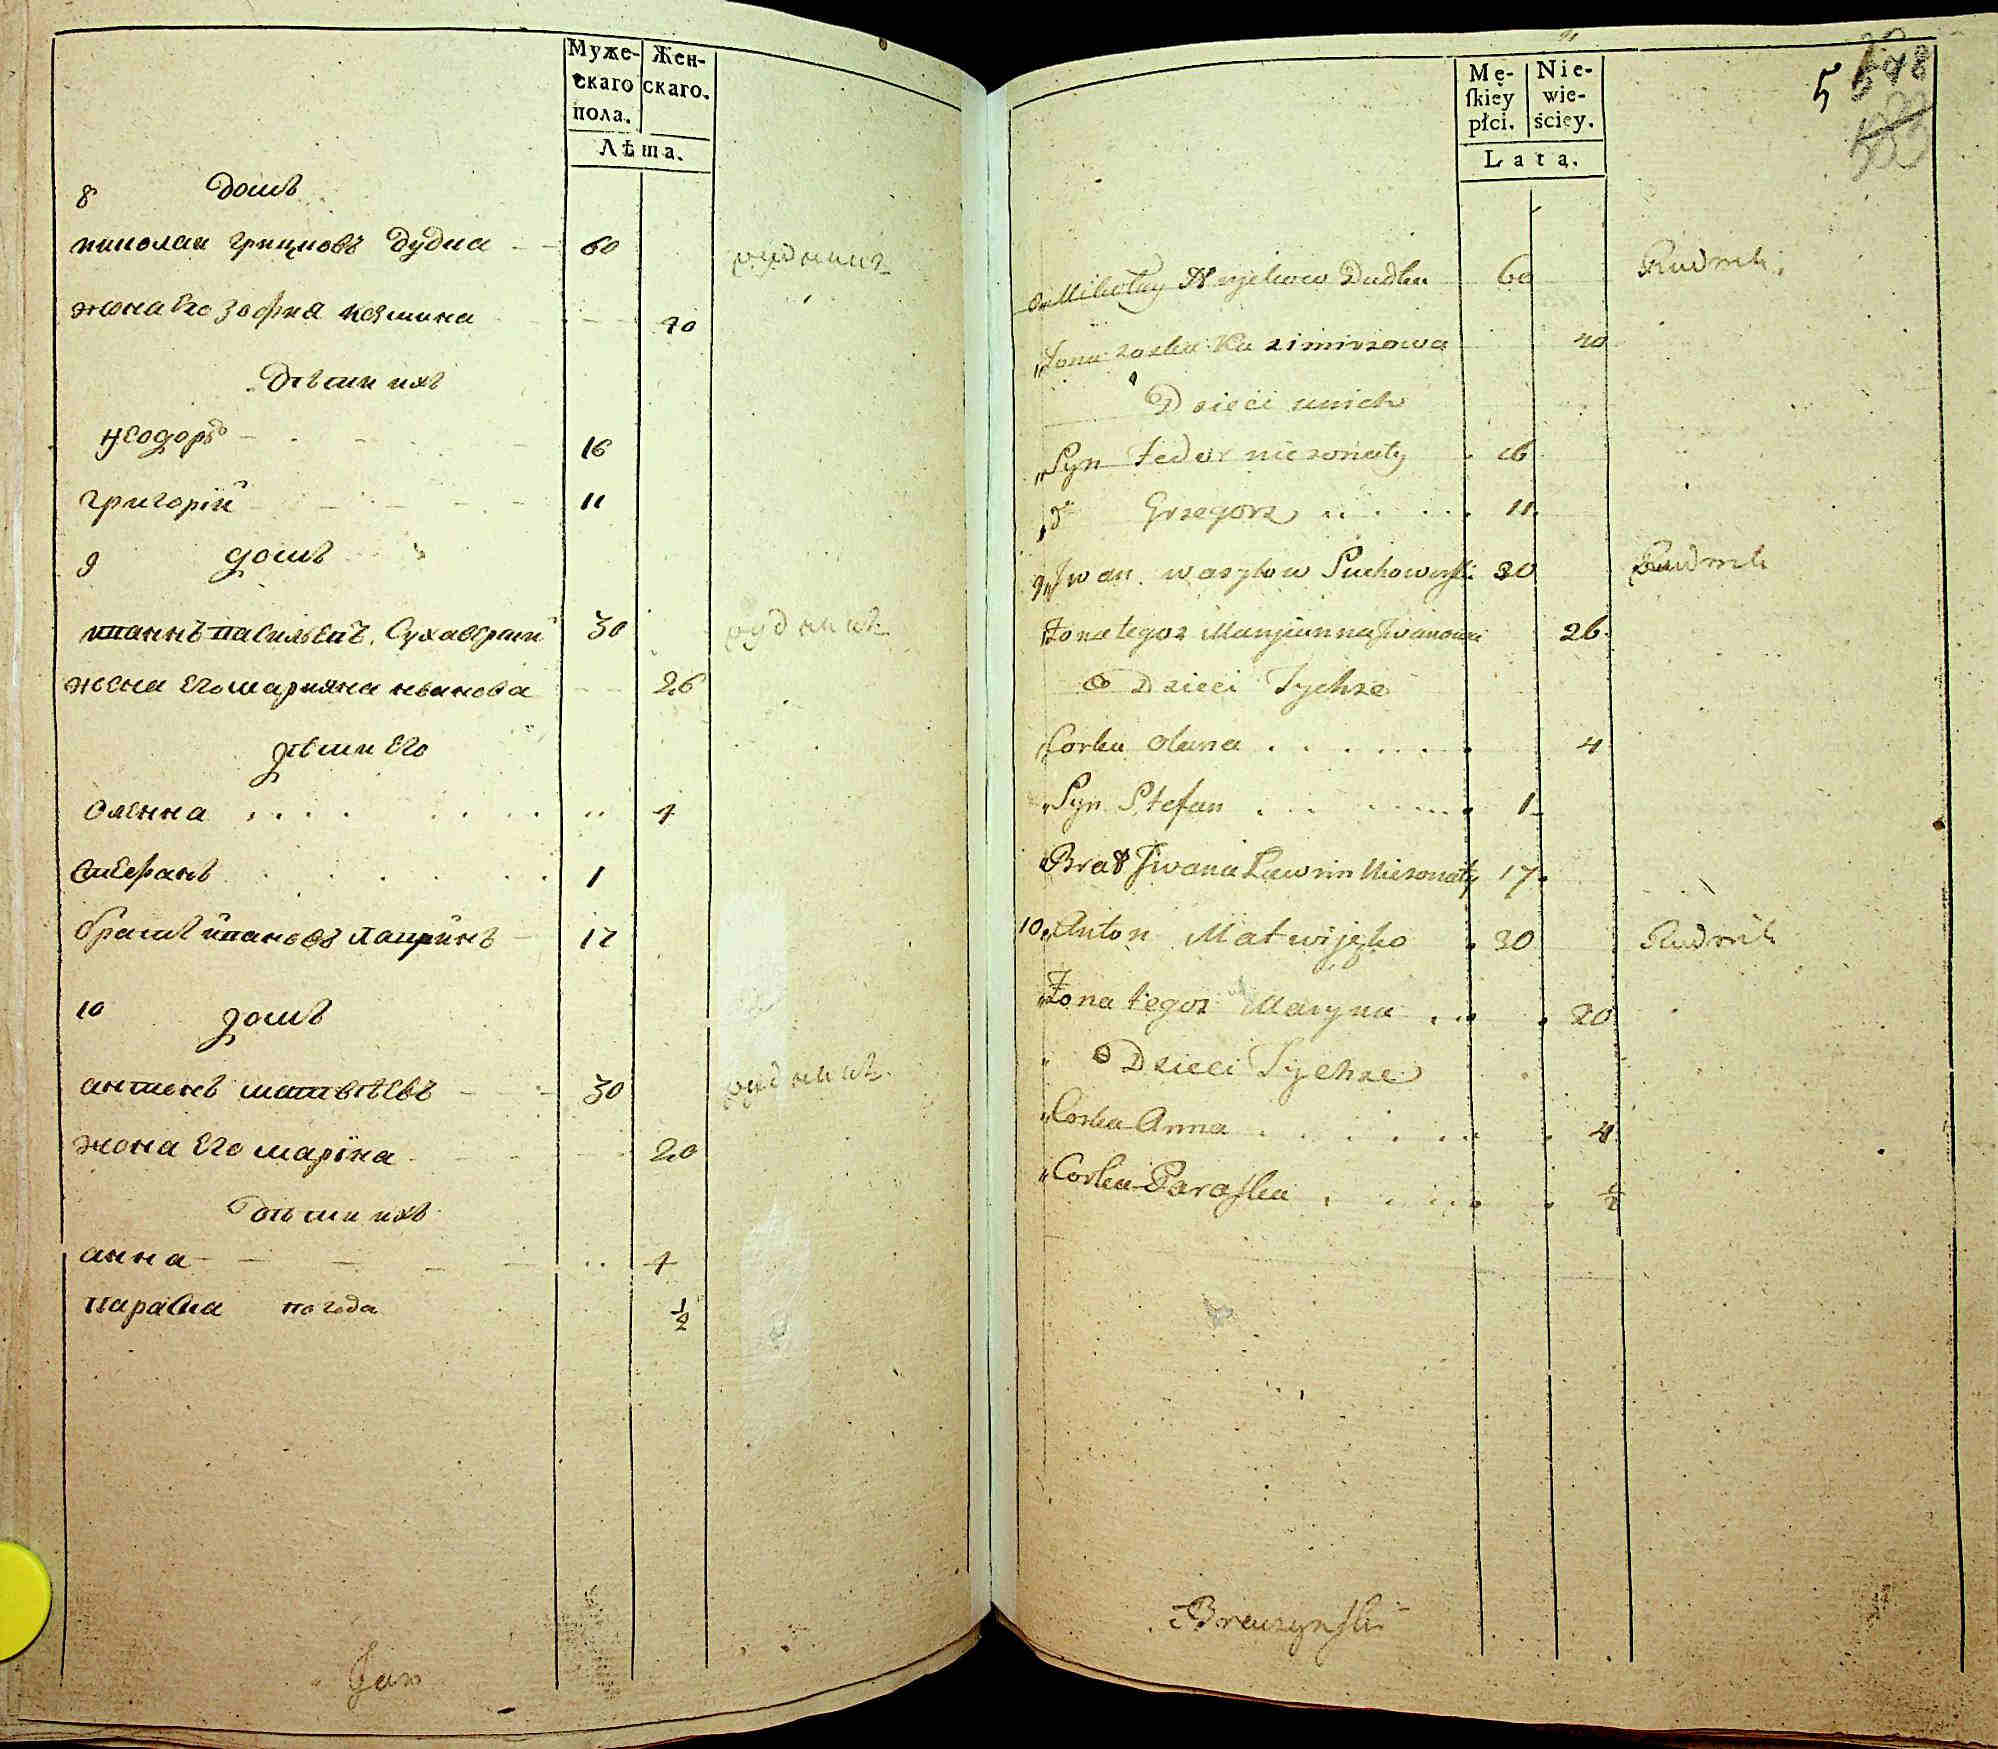 Муже-
скаго
пола.
Жен-
скаго.
Лѣта.
8 домъ
николаи грицковъ Дудка 60 рудникъ
жона Его Зофия 40
Дѣти ихъ
Ѳеодоръ 16
григорій 11
9 домъ
иванъ василъевъ Сухаверский 30 рудникъ
жена Его марияна иванова 26
дѣти Его
Оленна 4
Стефанъ 1
братъ ивановъ лавринъ 17
10 домъ
антонъ матвѣевъ 30 рудникъ
жона Его марина 20
Дѣти ихъ
анна 4
параска погода ½
Jan
5
Mę-
ſkiey
płci.
Nie-
wie-
ściey.
Lata.
Mikołay Dudka 60 Rudnik
Żona Zoska Kazimirzowa 40
Dzieci unich
Syn Fedor nieżonaty 16
dº Grzegorz 11
9 Jwan wasylow Suchowerski 30 Rudnik
Żona tegoz Maryianna Jwanowa 26
Dzieci Tychże
Corka Olena 4
Syn Stefan 1
Brat Jwana Ławrin Nieżonaty 17
10 Anton Matwijejko 30 Rudnik
Żona tegoz Maryna 20
Dzieci Tychże
Corka Anna 4
Corka Paraſka ½